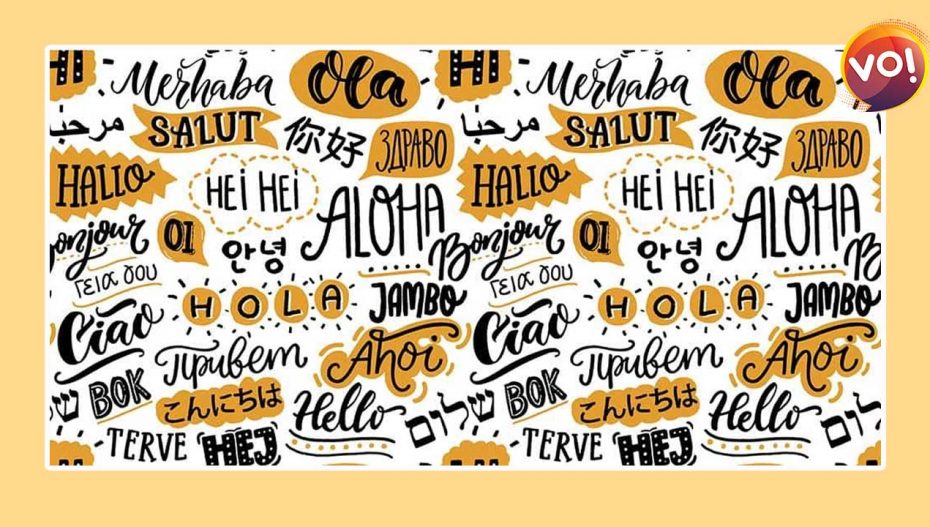 HI Merhaba Ola HI Merhaba Ola
VO!
مرحبا SALUT 你好 ЗДРАВО مرحبا SALUT 你好 ЗДРАВО
HALLO HEI HEI ALOHA HALLO HEI HEI ALOHA
Bonjour OI 안녕 Bonjour OI 안녕
Γεια σου HOLA JAMBO Γεια σου HOLA JAMBO
Ciao Привет Ahoi Ciao Привет Ahoi
BOK こんにちは Hello שלום BOK こんにちは Hello שלום
TERVE HEJ TERVE HEJ